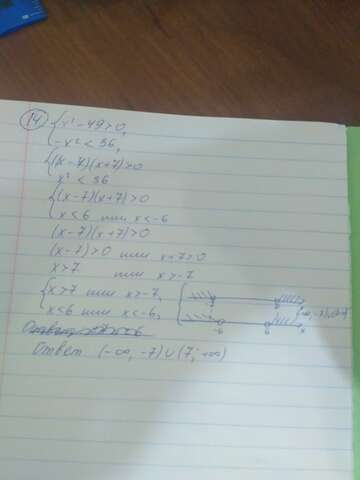 14
{ x² - 49 > 0,
{ -x² < 36,
{ (x-7)(x+7) > 0
x² < 36
{ (x-7)(x+7) > 0
x ≤ 6 или x < -6
(x-7)(x+7) > 0
(x-7) > 0 или x+7 > 0
x > 7 или x > -7
{ x > 7 или x > -7,
x ≤ 6 или x < -6,
-6 6 x
Ответ (-∞, -7) ∪ (7; +∞)